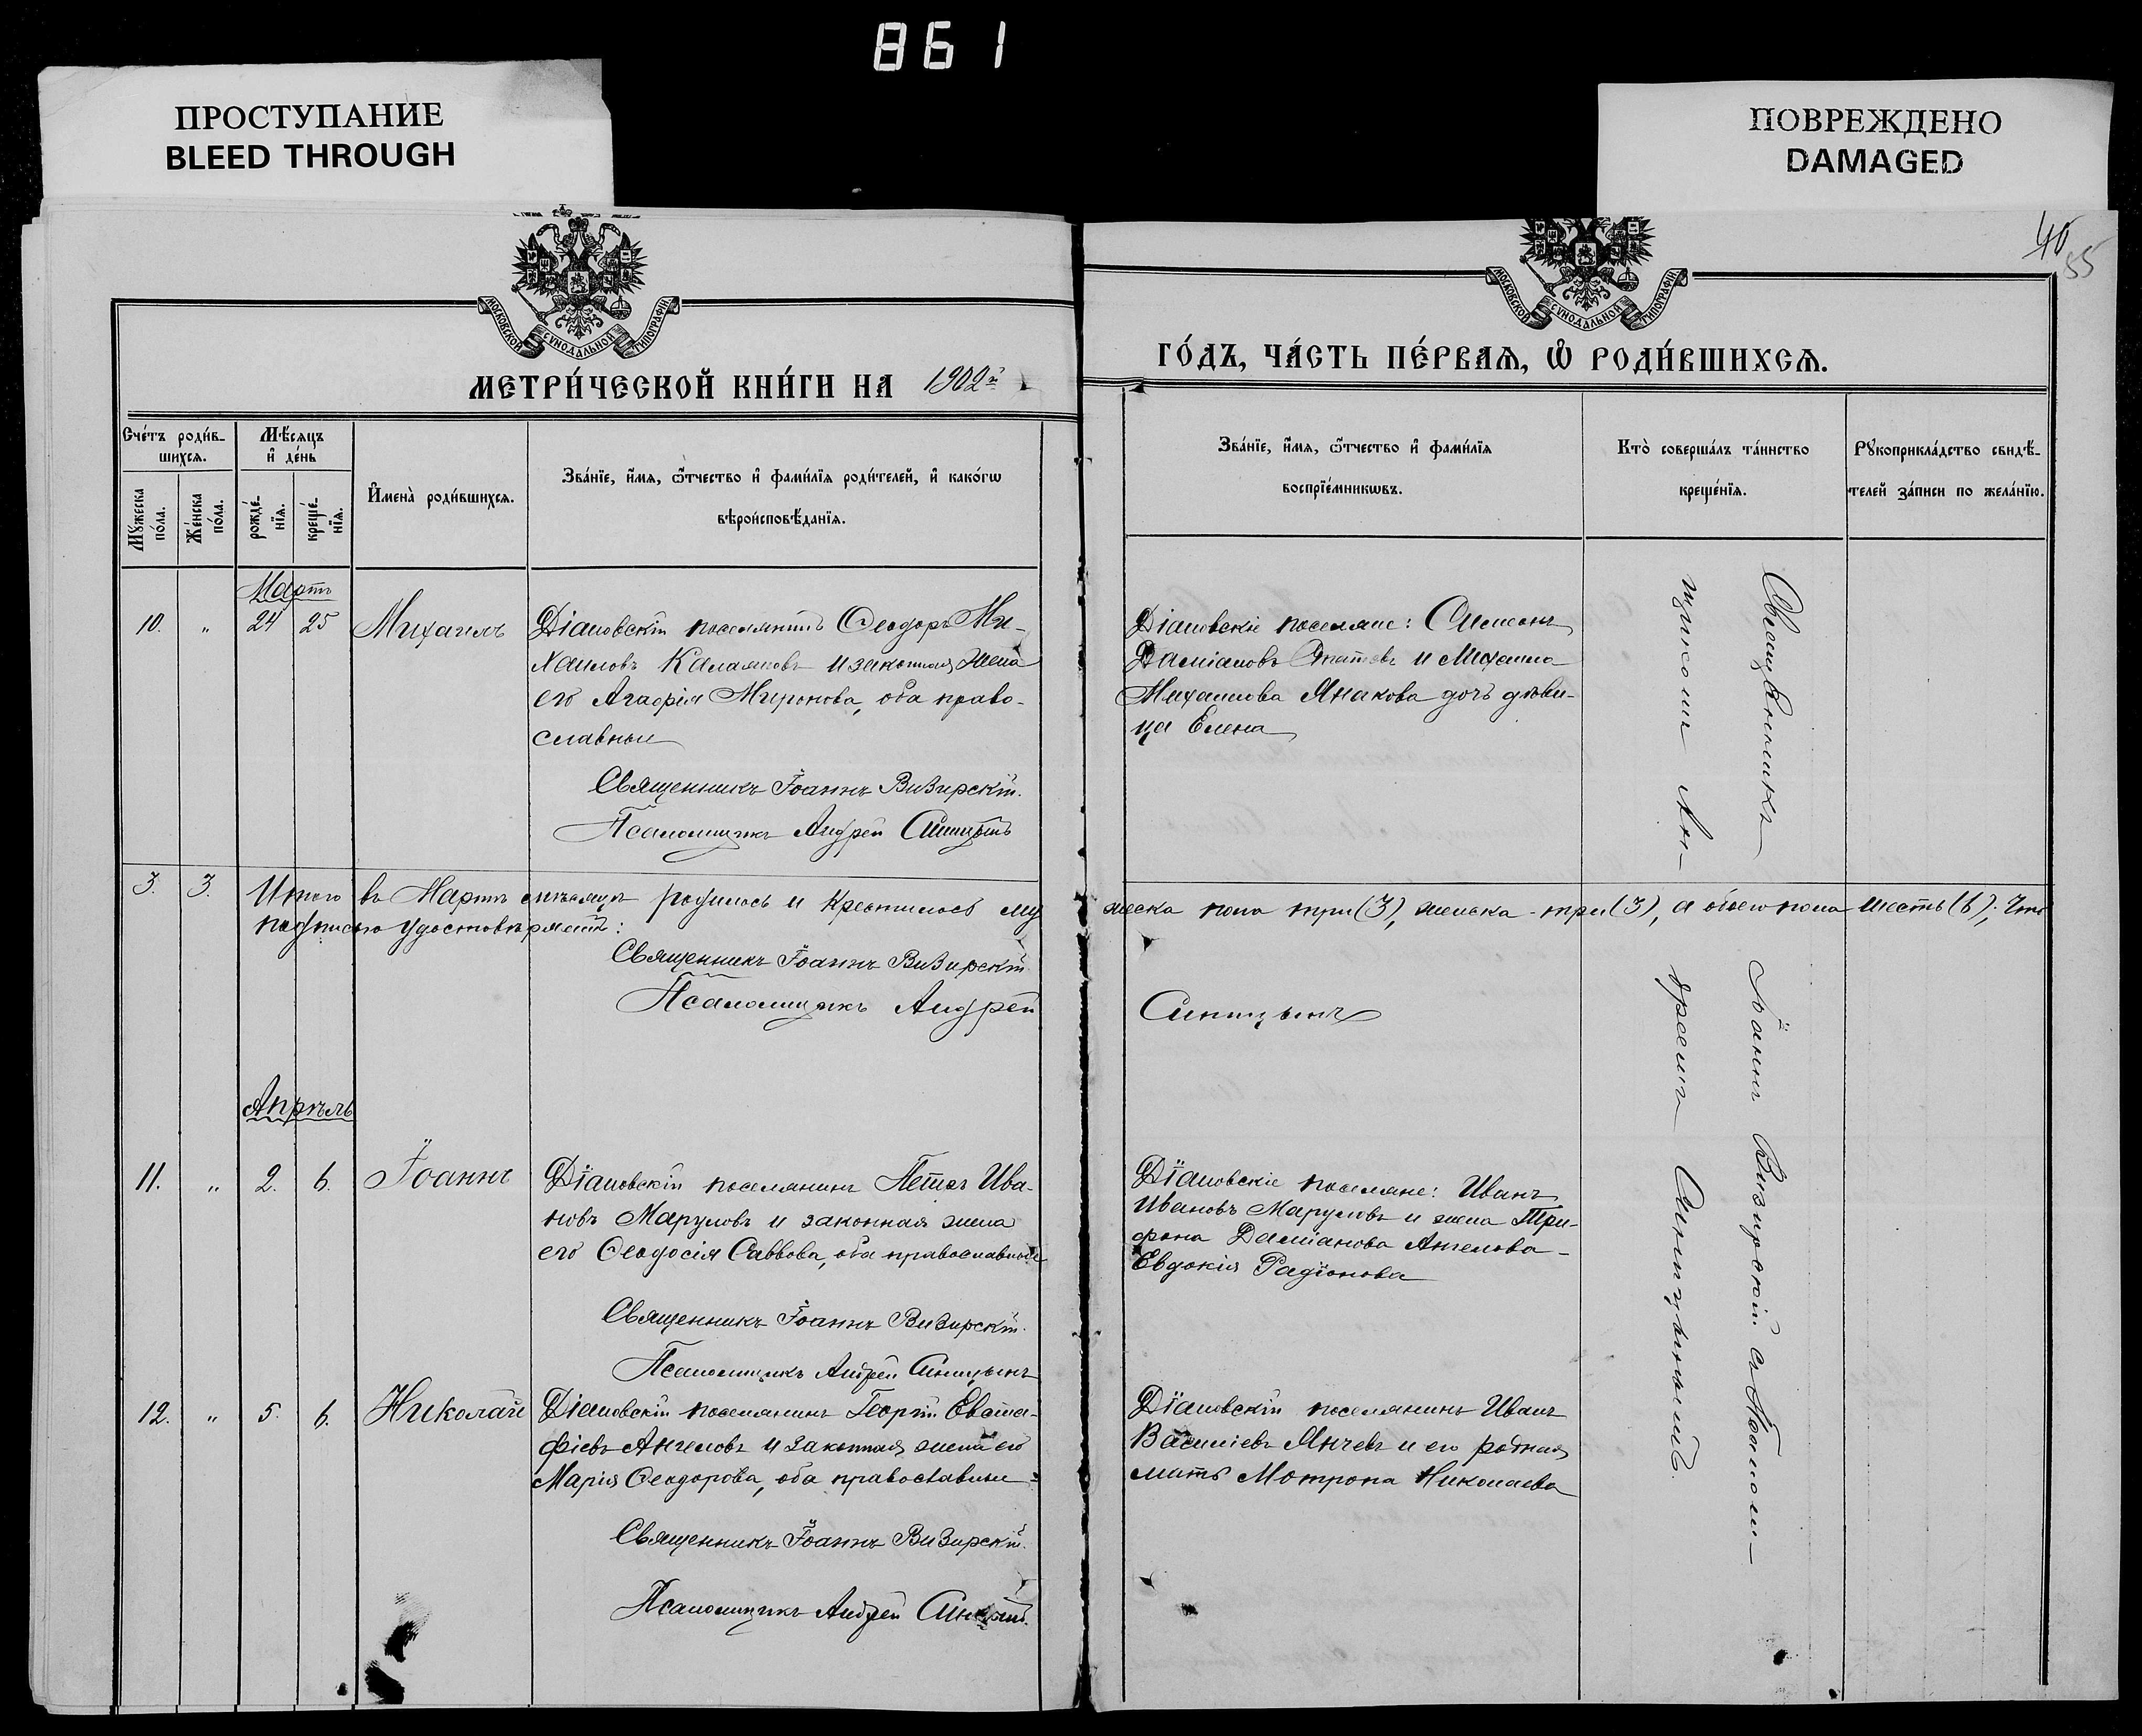 861
ПРОСТУПАНИЕ
BLEED THROUGH
ПОВРЕЖДЕНО
DAMAGED
40
55
МОСКОВСКОЙ СѴНОДАЛЬНОЙ ТИПОГРАФІИ
МОСКОВСКОЙ СѴНОДАЛЬНОЙ ТИПОГРАФІИ
МЕТРИ́ЧЕСКОЙ КНИ́ГИ НА 1902й
ГО́ДЪ, ЧА́СТЬ ПЕ́РВАЯ, Ѡ РОДИ́ВШИХСЯ.
Сче́тъ роди́в-
шихся.
Мꙋ́жеска по́ла.
Же́нска по́ла.
Мѣ́сяцъ
и҆ де́нь
рожде́-
нїя.
креще́-
нїя.
И҆мена̀ роди́вшихся.
Зва́нїе, и҆́мя, ѻ҆́тчество и҆ фами́лїя роди́телей, и҆ како́гѡ
вѣроисповѣ́данїя.
Зва́нїе, и҆́мя, ѻ҆́тчество и҆ фами́лїя
воспрїе́мникѡвъ.
Кто̀ соверша́лъ та́инство
креще́нїя.
Рꙋкоприкла́дство свидѣ́-
телей за́писи по жела́нїю.
Мартъ
10. " 24 25 Михаилъ
Діановскій поселянинъ Ѳеодоръ Ми-
хаиловъ Калаяновъ и законная жена
его Агафія Миронова, оба право-
славные
Священникъ Іоаннъ Визирскій.
Псаломщикъ Андрей Синицынъ
Діановскіе поселяне: Симеонъ
Даміановъ и Михаила
Михаилова Янакова дочь дѣви-
ца Елена
3. 3. Итого въ Мартѣ мѣсяцѣ родилось и крестилось му
жеска пола три (3), женска - три (3), а обоего пола шесть (6); Что
подписью удостовѣряемъ:
Священникъ Іоаннъ Визирскій
Псаломщикъ Андрей
Синицынъ
Апрѣль
11. " 2. 6. Іоаннъ
Діановскій поселянинъ Петръ Ива-
новъ Маруловъ и законная жена
его Ѳеодосія Саввова, оба православные
Священникъ Іоаннъ Визирскій.
Псаломщикъ Андрей Синицынъ
Діановскіе поселяне: Иванъ
Ивановъ Маруловъ и жена Три-
фона Даміанова Ангелова -
Евдокія Радіонова
12. " 5. 6. Николай
Діановскій поселянинъ Георгій Евста-
фіевъ Ангеловъ и законная жена его
Марія Ѳеодорова, оба православные
Священникъ Іоаннъ Визирскій.
Псаломщикъ Андрей Синицынъ.
Діановскій поселянинъ Иванъ
Василіевъ Янчевъ и его родная
мать Мотрона Николаева
Священникъ Іоаннъ Визирскій съ Псалом-
щикомъ Ан-
дреемъ Синицынымъ.